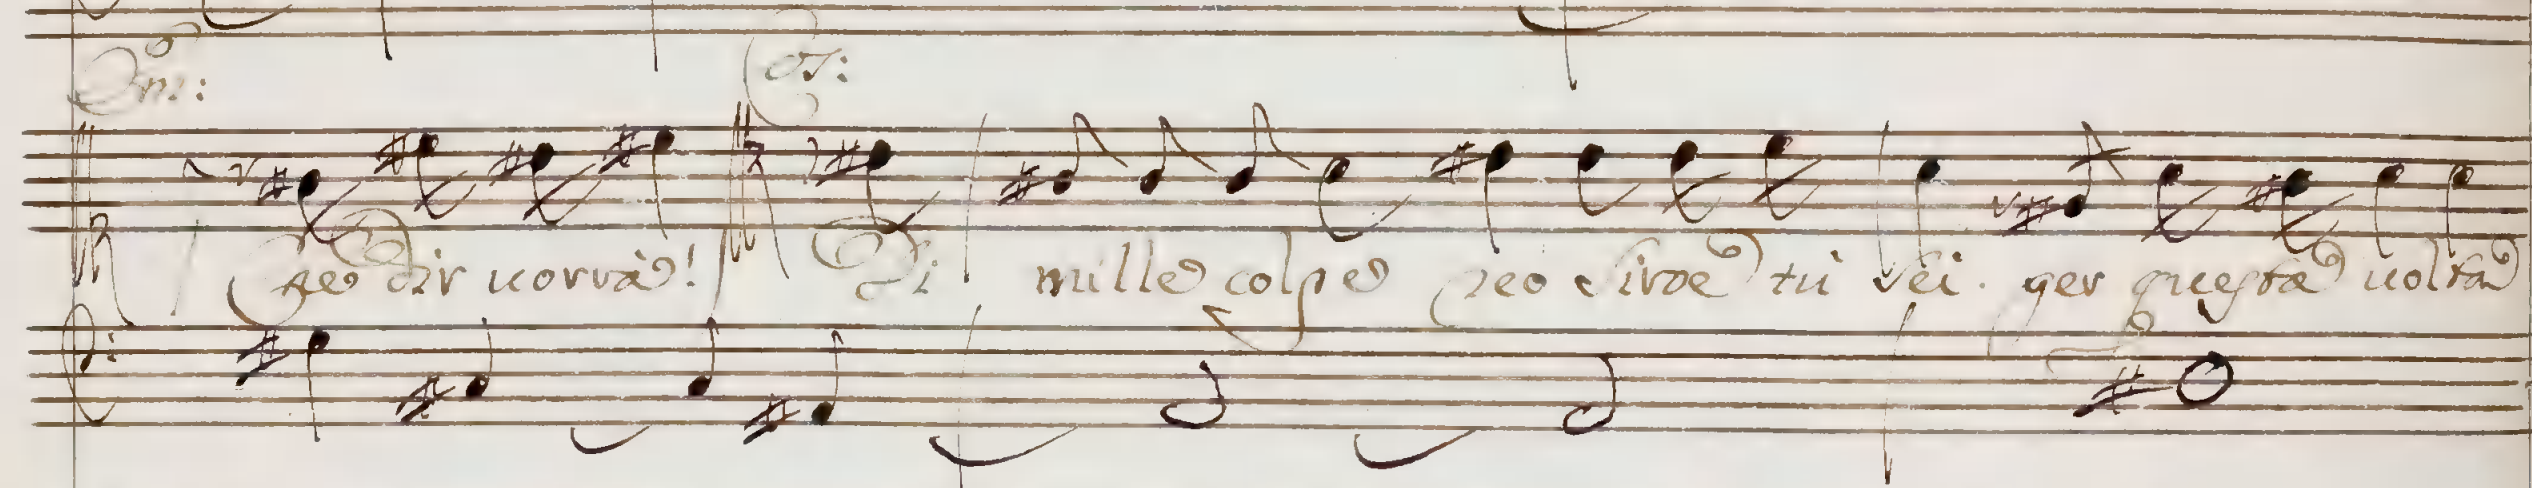 Che dir uorrà! Di mille colpe reo Siroe tu sei. per questa uolta